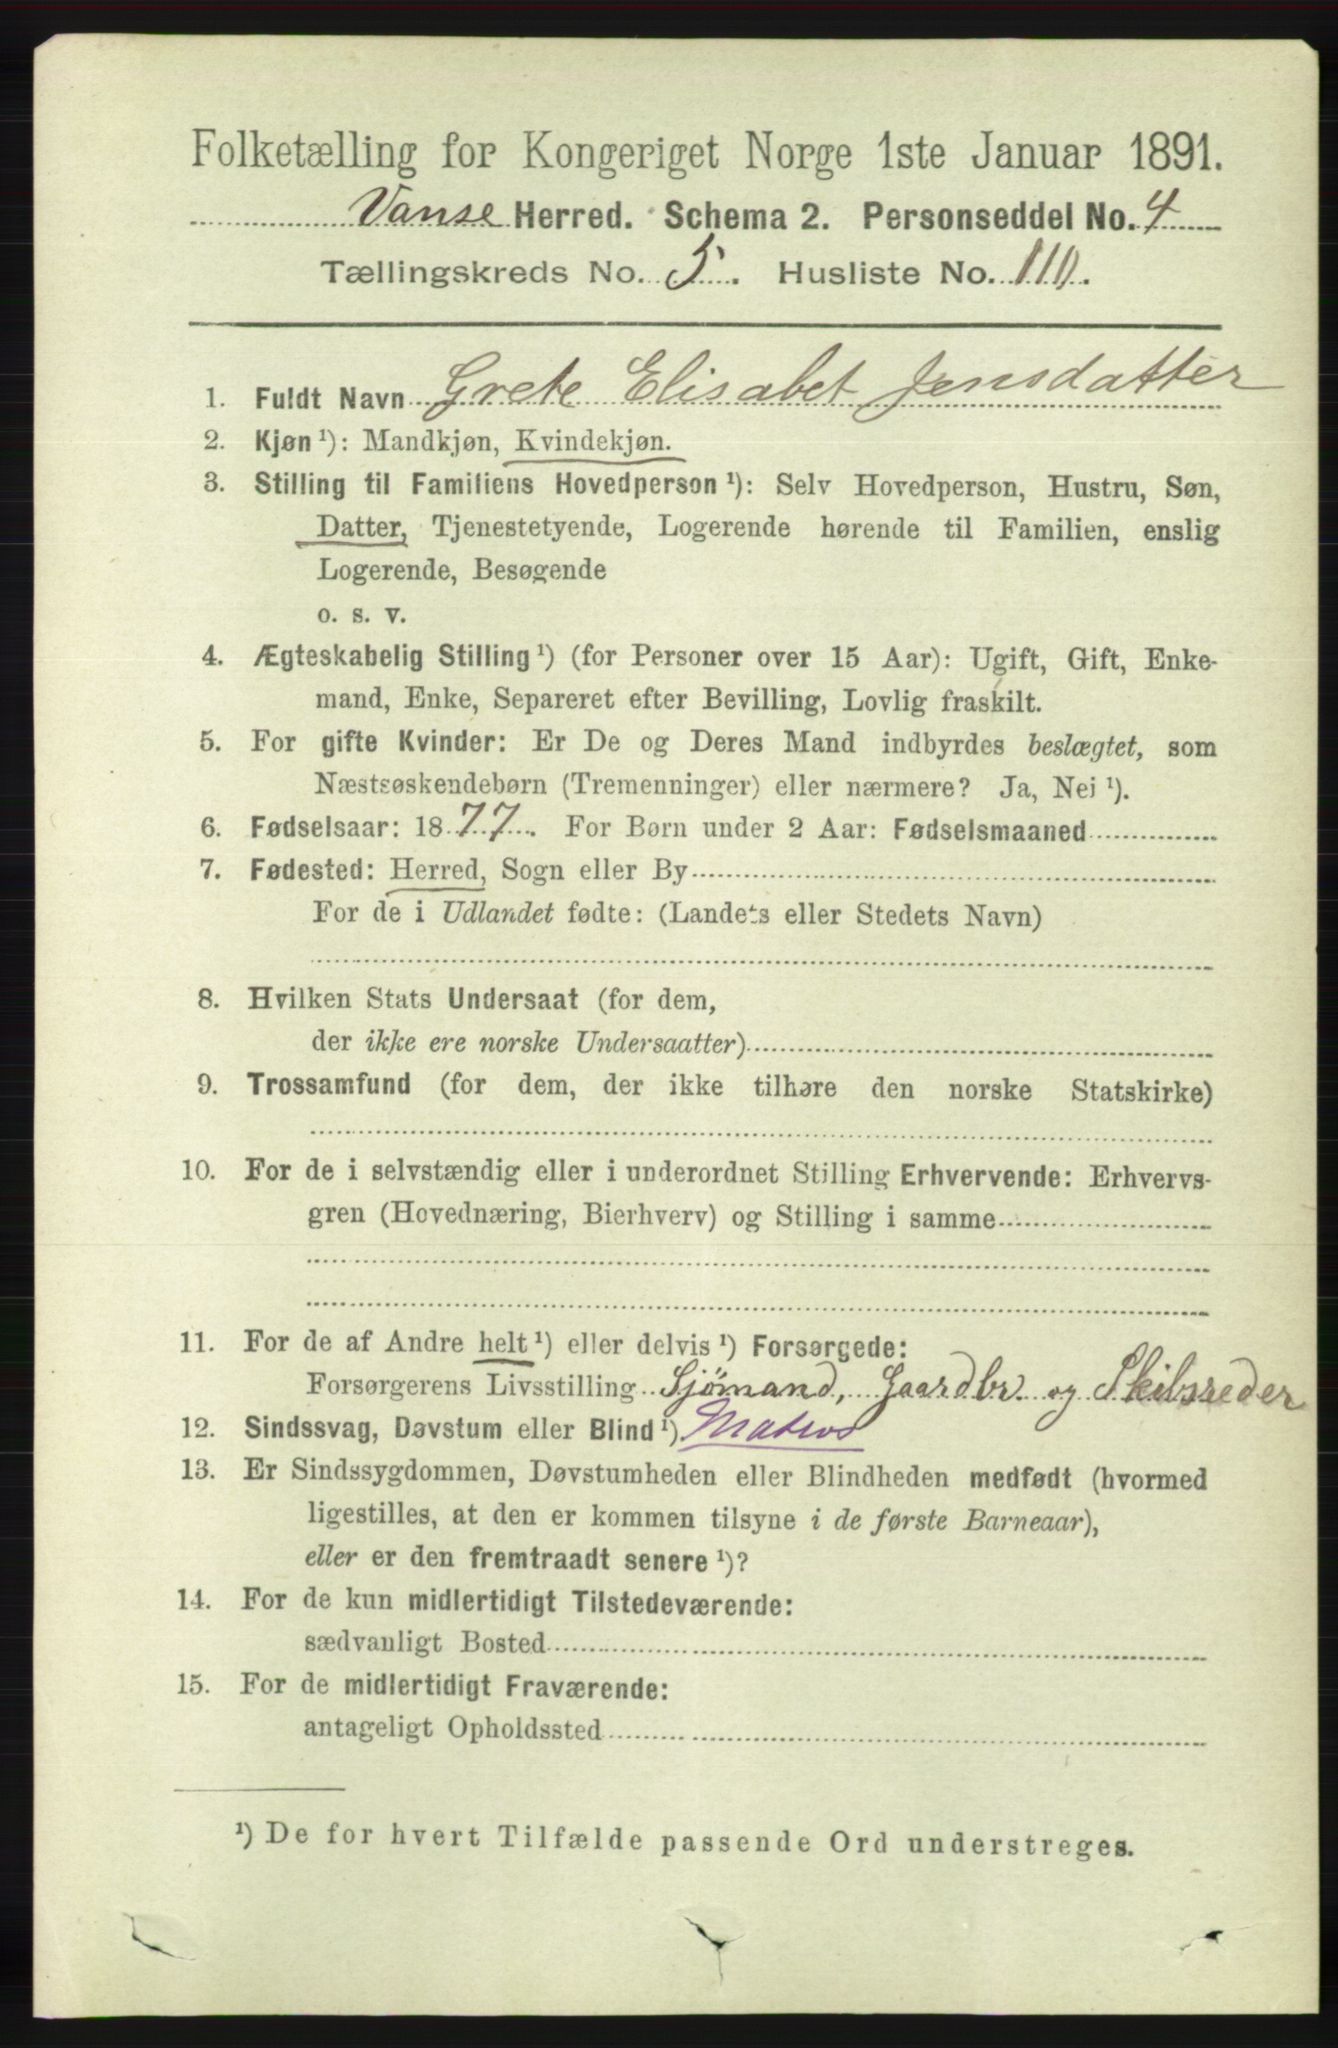 Folketælling for Kongeriget Norge 1ste Januar 1891.
Vanse Herred. Schema 2. Personseddel No. 4
Tællingskreds No. 5. Husliste No. 110.
1. Fuldt Navn Grete Elisabet Jensdatter
2. Kjøn ¹): Mandkjøn, Kvindekjøn.
3. Stilling til Familiens Hovedperson ¹): Selv Hovedperson, Hustru, Søn,
Datter, Tjenestetyende, Logerende hørende til Familien, enslig
Logerende, Besøgende
o. s. v.
4. Ægteskabelig Stilling ¹) (for Personer over 15 Aar): Ugift, Gift, Enke-
mand, Enke, Separeret efter Bevilling, Lovlig fraskilt.
5. For gifte Kvinder: Er De og Deres Mand indbyrdes beslægtet, som
Næstsøskendebørn (Tremenninger) eller nærmere? Ja, Nei ¹).
6. Fødselsaar: 1877. For Børn under 2 Aar: Fødselsmaaned
7. Fødested: Herred, Sogn eller By
For de i Udlandet fødte: (Landets eller Stedets Navn)
8. Hvilken Stats Undersaat (for dem,
der ikke ere norske Undersaatter)
9. Trossamfund (for dem, der ikke tilhøre den norske Statskirke)
10. For de i selvstændig eller i underordnet Stilling Erhvervende: Erhvervs-
gren (Hovednæring, Bierhverv) og Stilling i samme
11. For de af Andre helt ¹) eller delvis ¹) Forsørgede:
Forsørgerens Livsstilling Sjømand, Gaardbr. og Skibsreder
12. Sindssvag, Døvstum eller Blind ¹)
13. Er Sindssygdommen, Døvstumheden eller Blindheden medfødt (hvormed
ligestilles, at den er kommen tilsyne i de første Barneaar),
eller er den fremtraadt senere ¹)?
14. For de kun midlertidigt Tilstedeværende:
sædvanligt Bosted
15. For de midlertidigt Fraværende:
antageligt Opholdssted
¹) De for hvert Tilfælde passende Ord understreges.